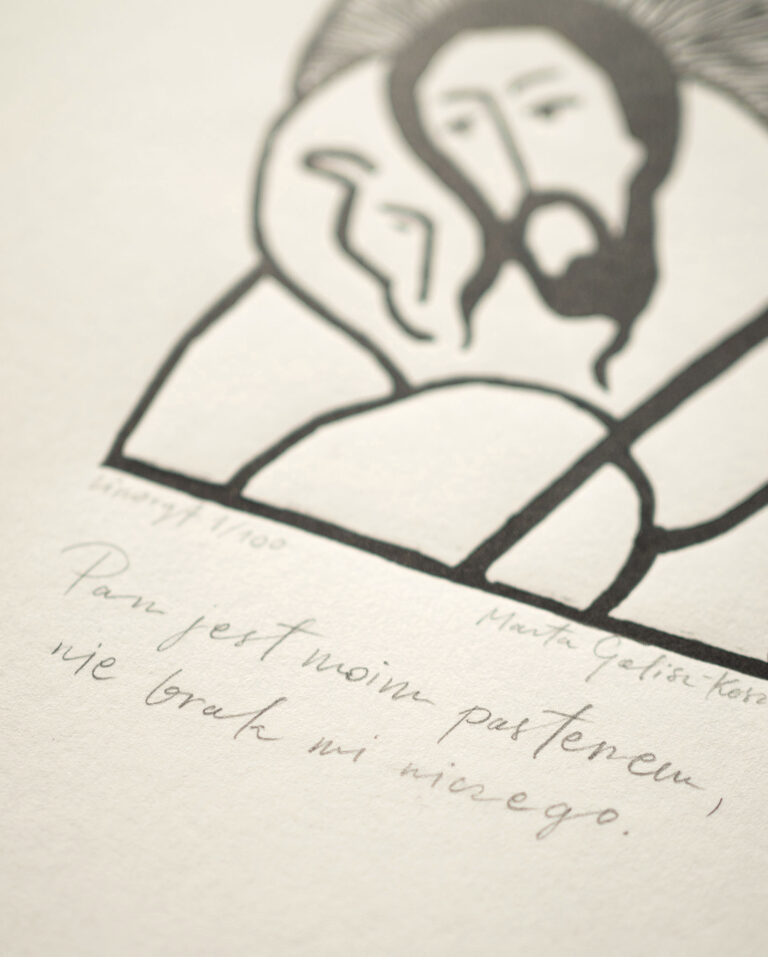 linoryt 1/100
Marta Galisz-Kosz
Pan jest moim pasterzem,
nie brak mi niczego.